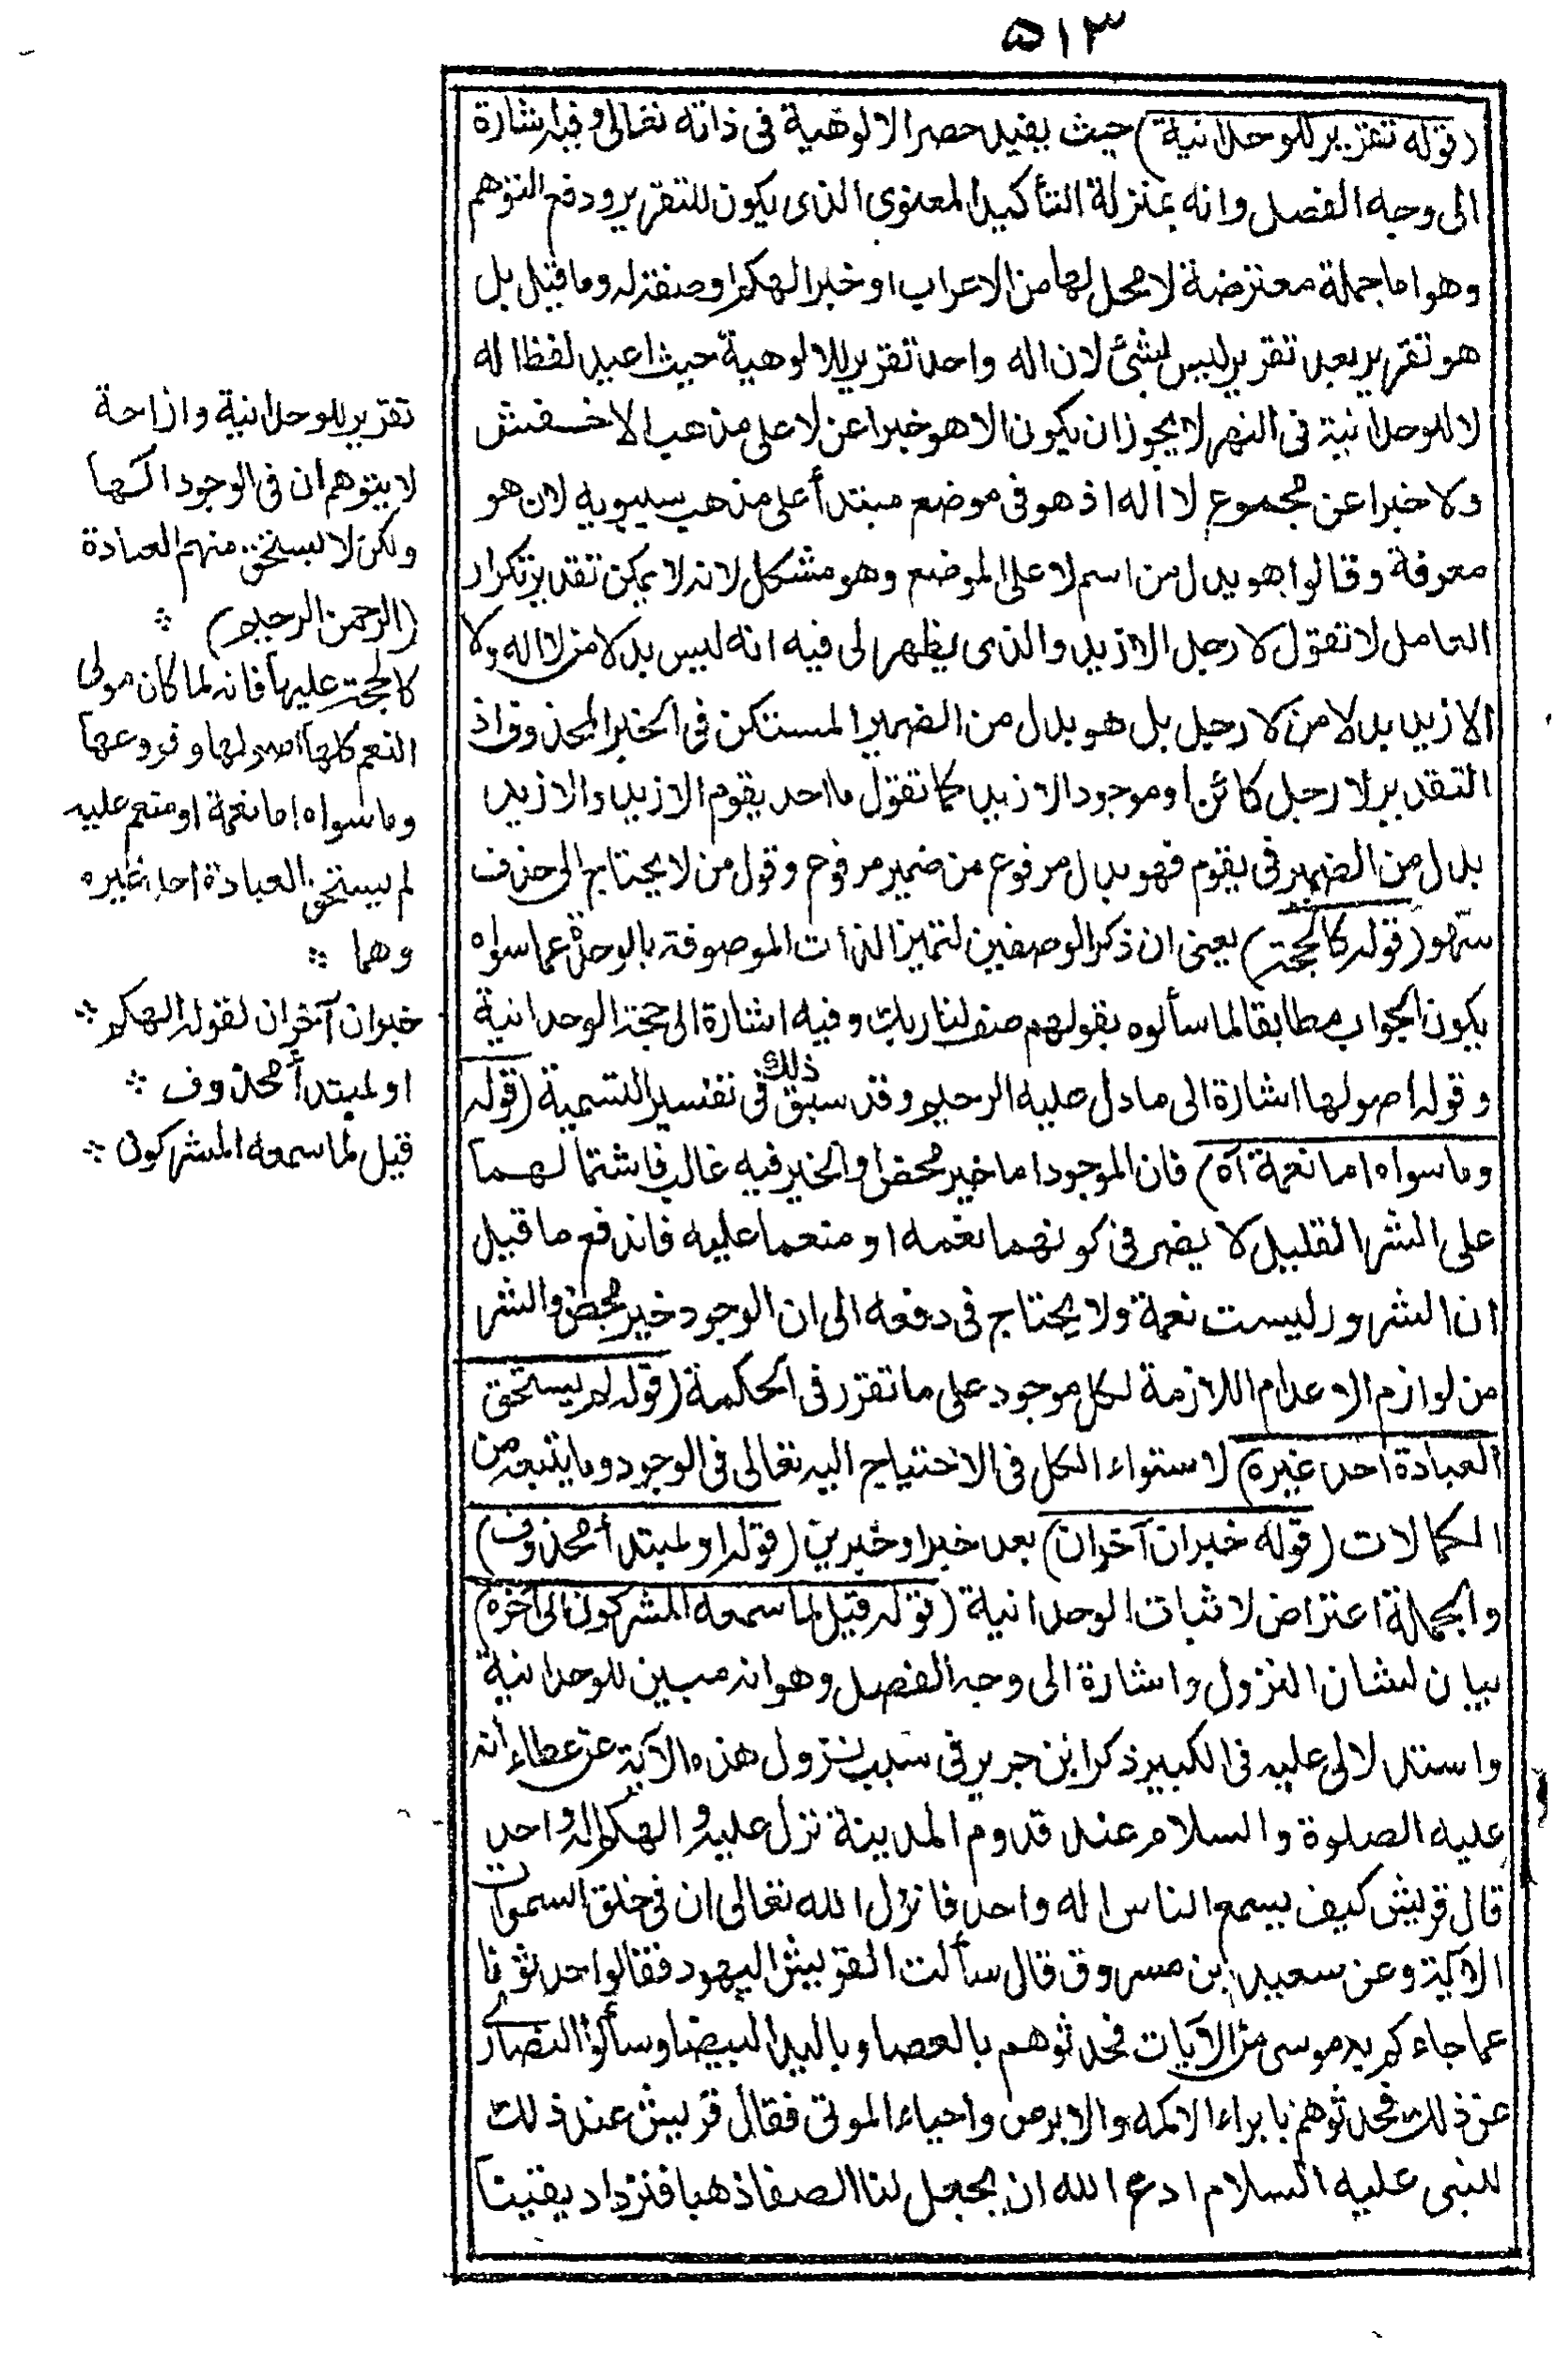 ٥١٣
(قوله تقرير للوحدانية) حيث يفيد حصر الالوهية فى ذاته تعالى وفيه اشارة
الى وجه الفصل وانه بمنزلة التأكيد المعنوى الذى يكون للتقرير ودفع التوهم
وهو اما جملة معترضة لا محل لها من الاعراب او خبر الهكم او صفة له وما قيل بل
هو تقرير بعد تقرير ليس بشئ لان اله واحد تقرير للالوهية حيث اعيد لفظ اله
لا للوحدانية فى النهر لا يجوز ان يكون الا هو خبرا عن لا على مذهب الاخفش
ولا خبرا عن مجموع لا اله اذ هو فى موضع مبتدأ على مذهب سيبويه لان هو
معرفة وقالوا هو بدل من اسم لا على الموضع وهو مشكل لانه لا يمكن تقدير تكرار
العامل لا تقول لا رجل الا زيد والذى يظهر لى فيه انه ليس بدلا من لا اله ولا
الا زيد بدلا من لا رجل بل هو بدل من الضمير المستكن فى الخبر المحذوف اذ
التقدير لا رجل كائن او موجود الا زيد كما تقول ما احد يقوم الا زيد والا زيد
بدل من الضمير فى يقوم فهو بدل مرفوع من ضمير مرفوع وقول من لا يحتاج الى حذف
سهو (قوله كالحجة) يعنى ان ذكر الوصفين لتميز الذات الموصوفة بالوحدة عما سواه
يكون الجواب مطابقا لما سألوه بقولهم صف لنا ربك وفيه اشارة الى حجة الوحدانية
وقوله اصولها اشارة الى ما دل عليه الرحيم وقد سبق ذلك فى تفسير التسمية (قوله
وما سواه اما نعمة آه) فان الموجود اما خير محض او الخير فيه غالب فاشتمالهما
على الشر القليل لا يضر فى كونهما نعمه او منعما عليه فاندفع ما قيل
ان الشرور ليست نعمة ولا يحتاج فى دفعه الى ان الوجود خير محض والشر
من لوازم الاعدام اللازمة لكل موجود على ما تقرر فى الحكمة (قوله لم يستحق
العبادة احد غيره) لاستواء الكل فى الاحتياج اليه تعالى فى الوجود وما يتبعه من
الكمالات (قوله خبران آخران) بعد خبر او خبرين (قوله او لمبتدأ محذوف)
والجملة اعتراض لاثبات الوحدانية (قوله قيل لما سمعه المشركون الى آخره)
بيان لشان النزول واشارة الى وجه الفصل وهو انه مبين للوحدانية
واستدلالى عليه فى الكبير ذكر ابن جرير فى سبب نزول هذه الآية عن عطاء انه
عليه الصلوة والسلام عند قدوم المدينة نزل عليه والهكم اله واحد
قال قريش كيف يسمع الناس اله واحد فانزل الله تعالى ان فى خلق السموات
الاية وعن سعيد بن مسروق قال سألت القريش اليهود فقالوا حدثونا
عما جاءكم به موسى من الآيات فحدثوهم بالعصا وباليد البيضا وسألوا النصارى
عن ذلك فحدثوهم بابراء الاكمه والابرص واحياء الموتى فقال قريش عند ذلك
للنبى عليه السلام ادع الله ان يجعل لنا الصفا ذهبا فنزداد يقينا
تقرير للوحدانية وازاحة
لا يتوهم ان فى الوجود الها
ولكن لا يستحق منهم العبادة
(الرحمن الرحيم)
كالحجة عليها فانه لما كان مولى
النعم كلها اصولها وفروعها
وما سواه اما نعمة او منعم عليه
لم يستحق العبادة احد غيره
وهما
خبران آخران لقوله الهكم
او لمبتدأ محذوف
قيل لما سمعه المشركون